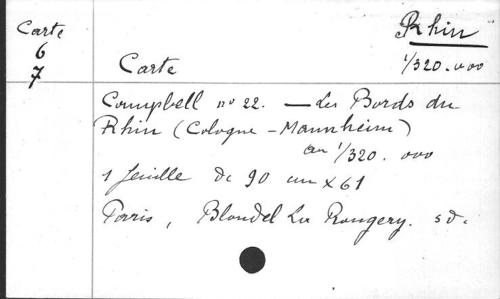 Carte
6
7
Rhin
1/320.000
Carte
Campbell no 22. — Les Bords du
Rhin (Cologne - Mannheim)
au 1/320.000
1 feuille de 90 cm x 61
Paris, Blondel La Rougery. sd.